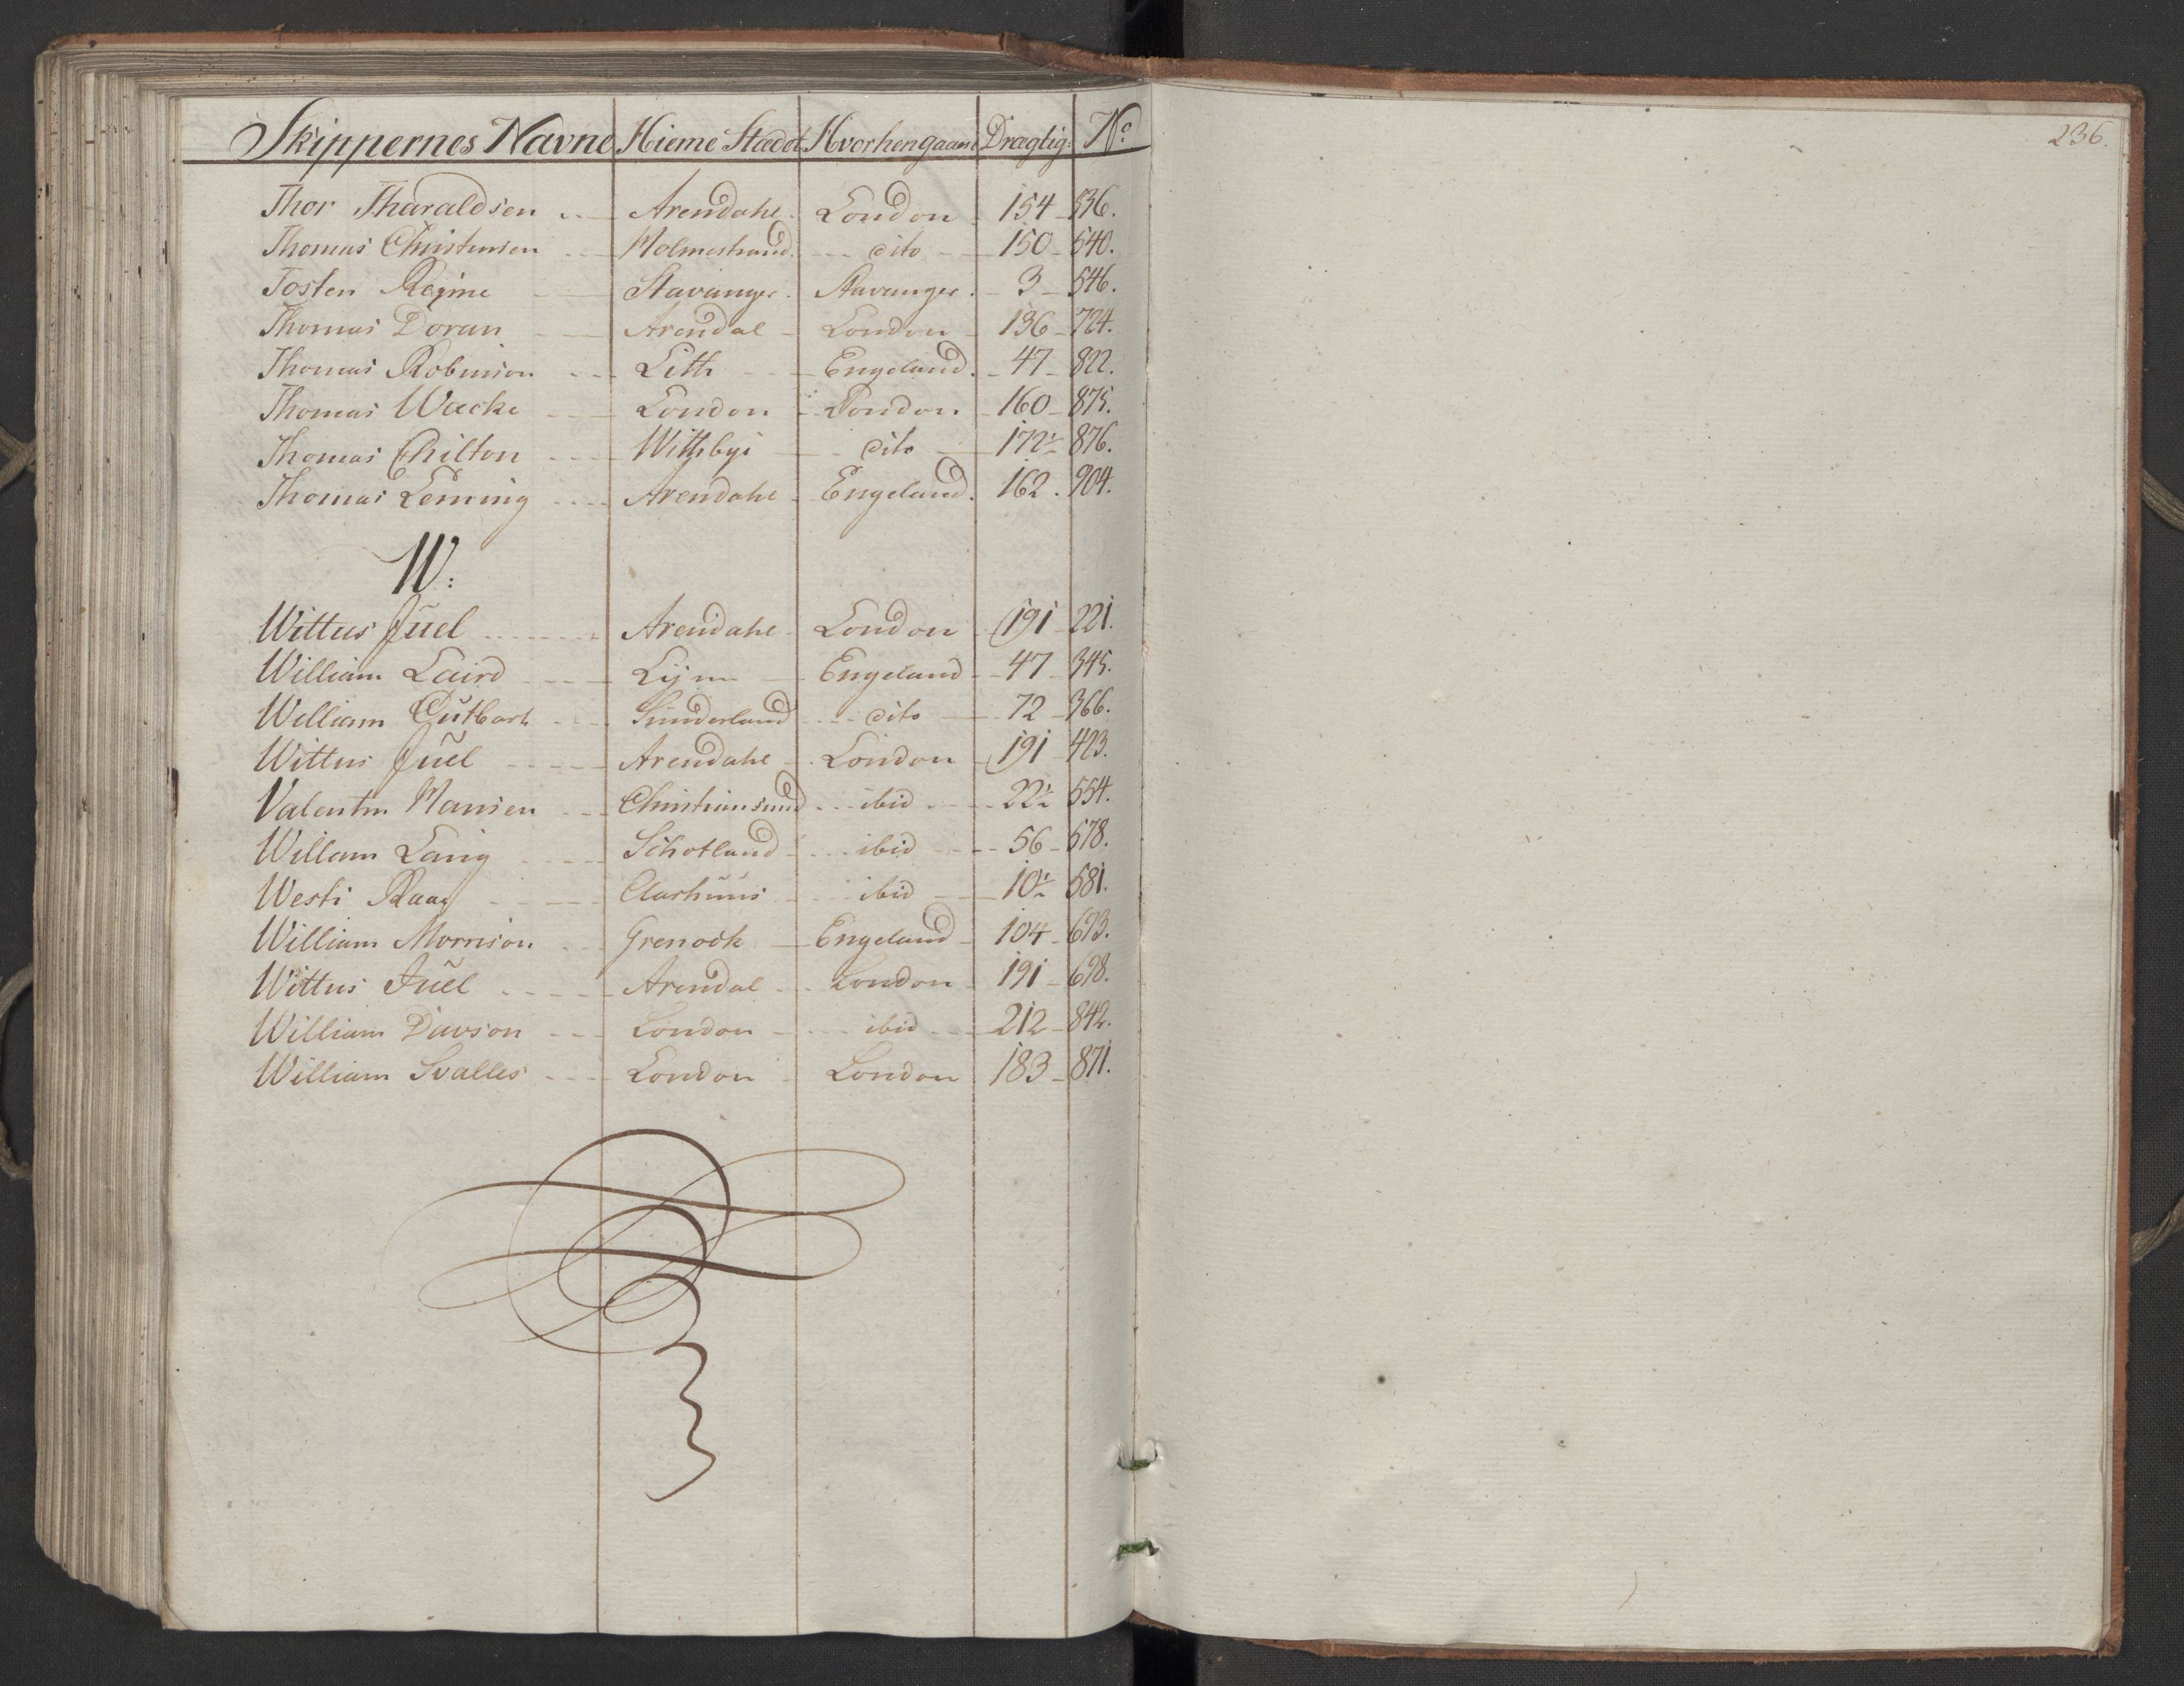 Skippernes Navne Hieme Stædet Hvorhengaaen Drægtig: No
236.
Thor Tharaldsen Arendahl London 154 536.
Thomas Christensen Holmestrand dito 150 540.
Tosten Regine Stavanger Stavanger 3 546.
Thomas Doran Arendal London 136 724.
Thomas Robinson Lith Engeland 47 822.
Thomas Wacke London London 160 875.
Thomas Chilton Withbye dito 172½ 876.
Thomas Leming Arendahl Engeland 162 904.
W:
Wittus Juel Arendahl London 191 221.
William Laird Lÿnn Engeland 47 345.
William Cutbart Sunderland dito 72 366.
Wittus Juel Arendahl London 191 423.
Valentin Hansen Christiansund ibid 22½ 554.
Willam Laing Schotland ibid 56 578.
Westi Raag Aarhuus ibid 10½ 581.
William Morrison Grenock Engeland 104 693.
Wittus Juel Arendal London 191 698.
William Davson London ibid 212 842.
William Svalles London London 183 871.